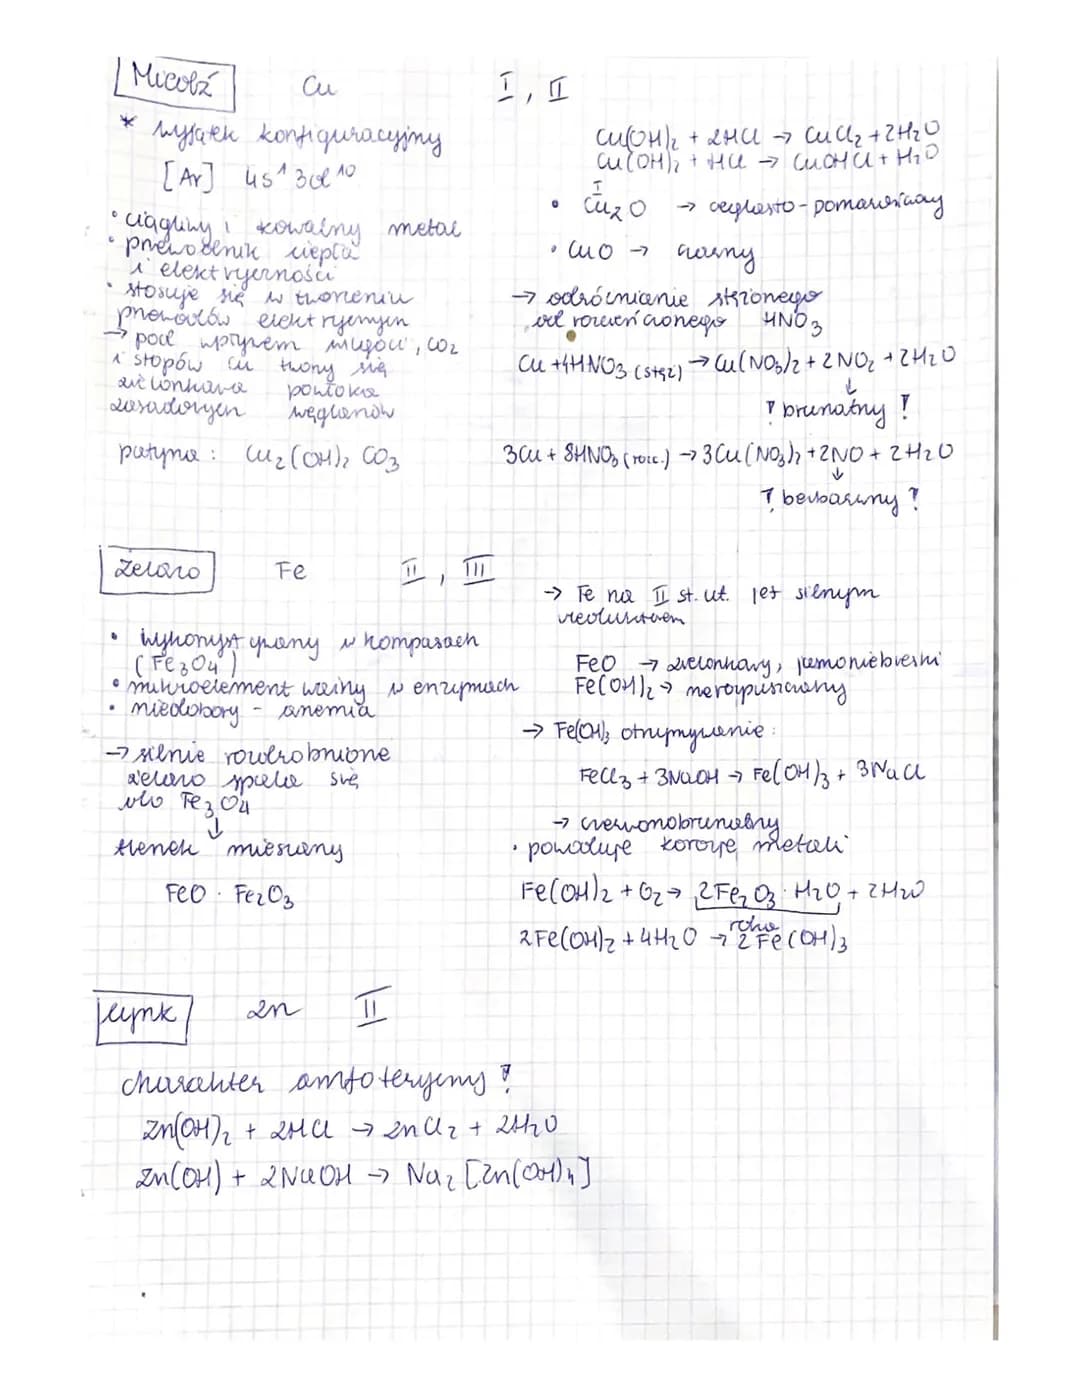 Miedź Cu I, II
* wyjątek konfiguracyjny
[Ar] 4s¹ 3d¹⁰
• ciągliwy i kowalny metal
• przewodnik ciepła
i elektryczności
• stosuje się w tworzeniu
przewodów elektrycznych
→ pod wpływem wilgoci, CO2
i stopów Cu tworzy się
zielonkawa powłoka
zasadowych węglanów
patyna: Cu₂(OH)₂ CO₃
Cu(OH)₂ + 2HCl → CuCl₂ + 2H₂O
Cu(OH)₂ + HCl → CuOHCl + H₂O
I
• Cu₂O → ceglasto-pomarańczowy
• CuO → czarny
→ odróżnianie stężonego
od rozcieńczonego HNO₃
Cu + 4HNO₃ (stęż) → Cu(NO₃)₂ + 2NO₂ + 2H₂O
↓
! brunatny !
3Cu + 8HNO₃ (rozc.) → 3Cu(NO₃)₂ + 2NO + 2H₂O
↓
! bezbarwny !
Żelazo Fe II, III
• wykorzystywany w kompasach
(Fe₃O₄)
• mikroelement ważny w enzymach
• niedobory - anemia
→ silnie rozdrobnione
żelazo spala się
do Fe₃O₄
↓
tlenek mieszany
FeO · Fe₂O₃
→ Fe na II st. ut. jest silnym
reduktorem
FeO → zielonkawy, jasnoniebieski
Fe(OH)₂ → nierozpuszczalny
→ Fe(OH)₃ otrzymywanie:
FeCl₃ + 3NaOH → Fe(OH)₃ + 3NaCl
→ czerwonobrunatny
• powoduje korozję metali
Fe(OH)₂ + O₂ → 2Fe₂O₃ · H₂O + 2H₂O
rdza
2Fe(OH)₂ + 4H₂O → 2Fe(OH)₃
cynk Zn II
charakter amfoteryczny !
Zn(OH)₂ + 2HCl → ZnCl₂ + 2H₂O
Zn(OH) + 2NaOH → Na₂[Zn(OH)₄]